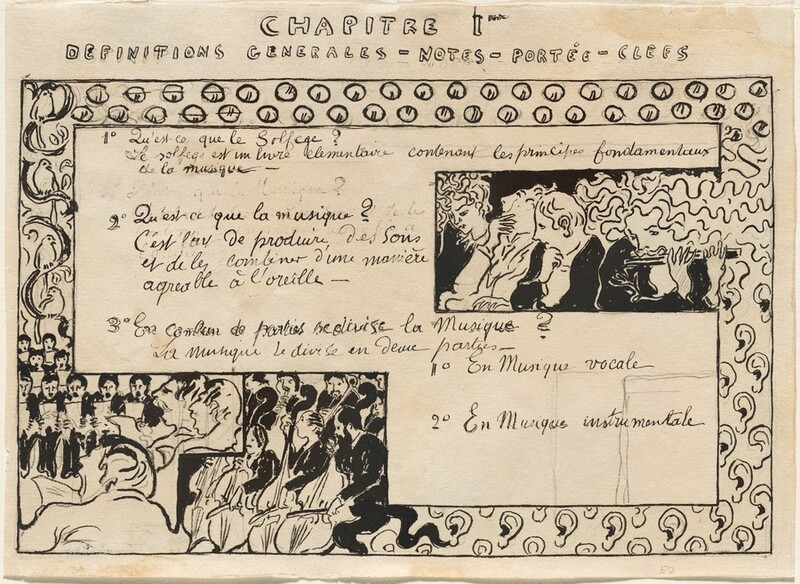 CHAPITRE 1
DEFINITIONS GENERALES - NOTES - PORTÉE - CLEFS
1° Qu'est ce que le Solfege ?
Le solfege est un livre elementaire contenant les principes fondamentaux
de la musique —
2° Qu'est ce que la musique ?
C'est l'art de produire des Sons
et de les combiner d'une manière
agreable à l'oreille —
3° En combien de parties se divise la Musique ?
La musique se divise en deux parties —
1° En Musique vocale
2° En Musique instrumentale
52